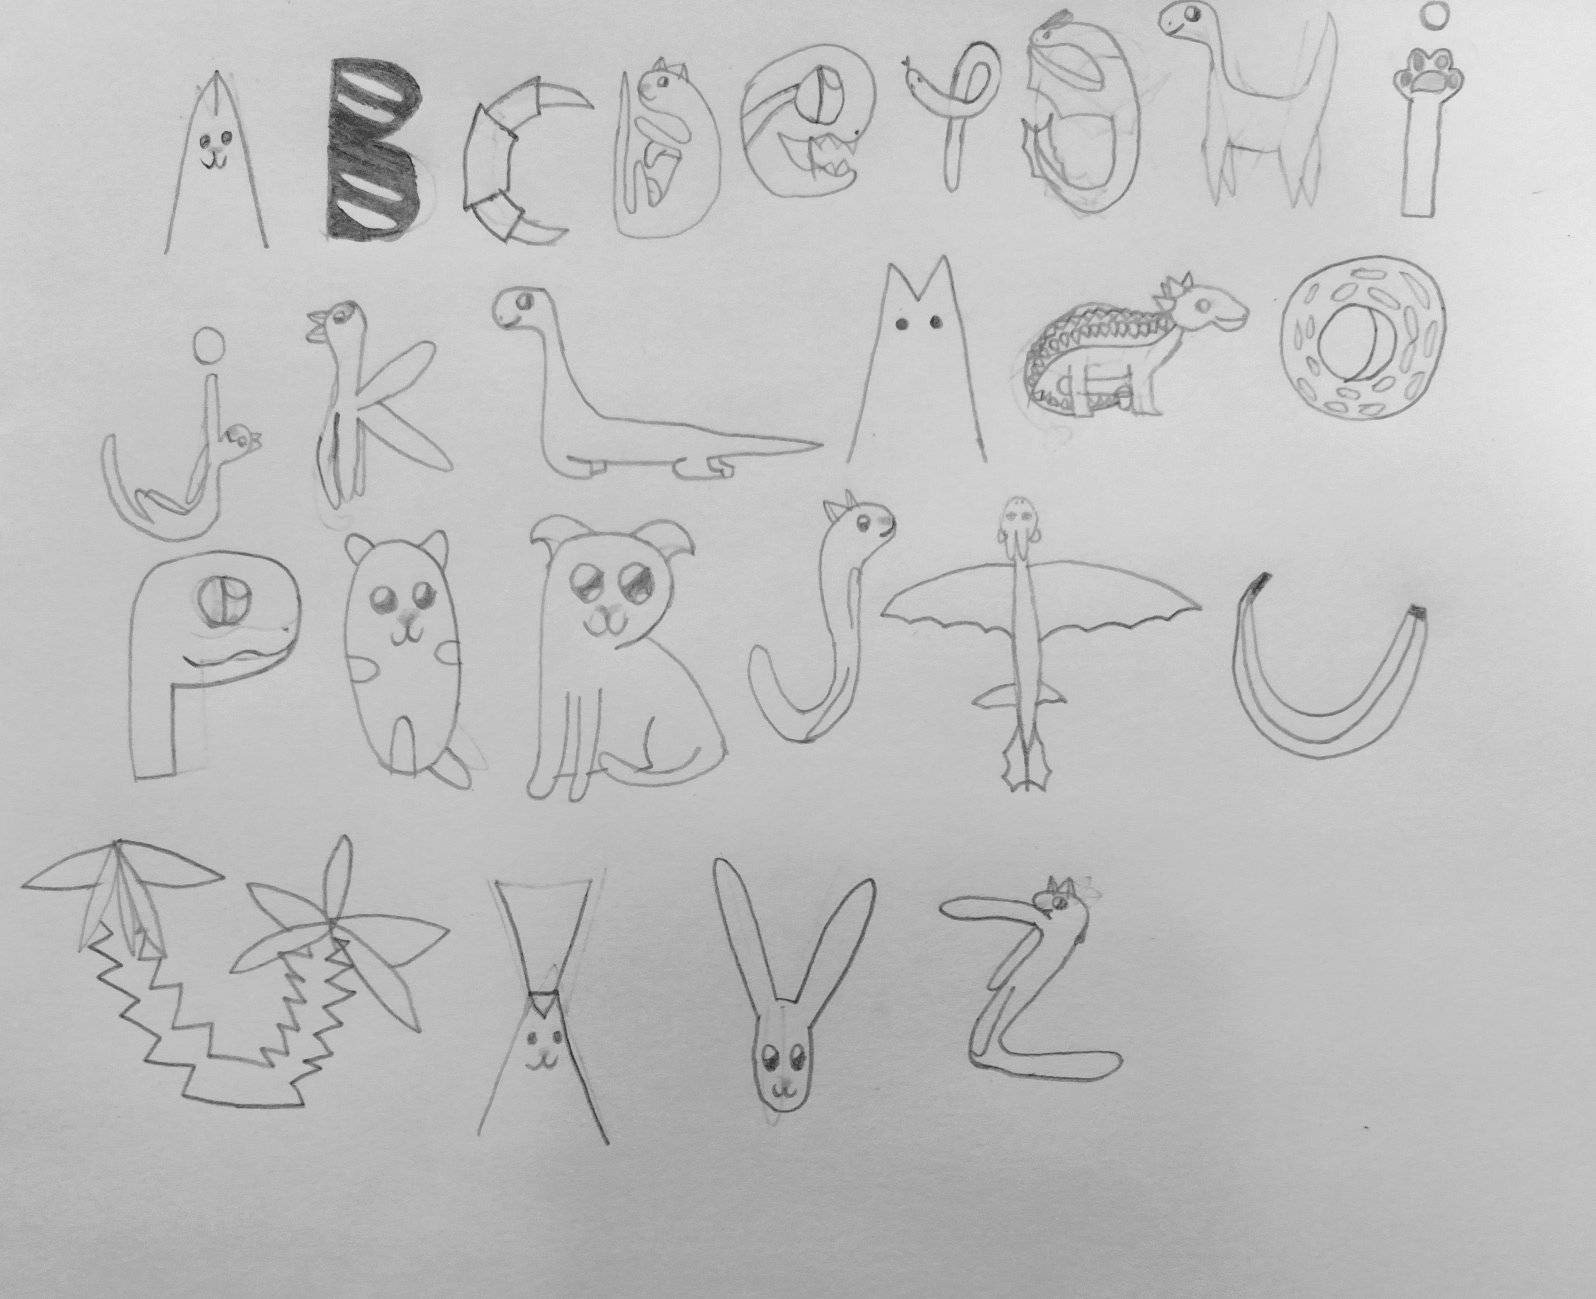 A B C D e f G H i
j K L M n O
P Q R J T U
V X Y Z